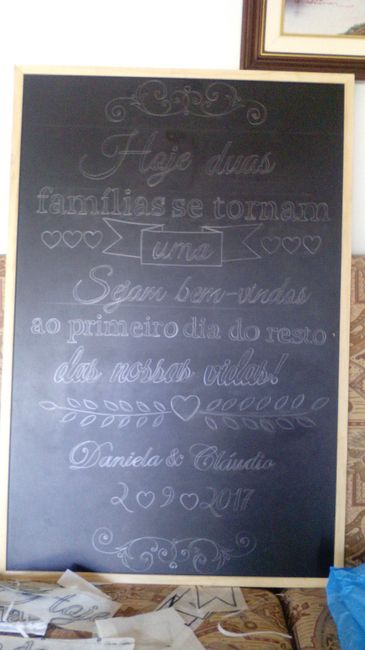 Hoje duas
famílias se tornam
uma
Sejam bem-vindos
ao primeiro dia do resto
das nossas vidas!
Daniela & Cláudio
2♡9♡2017